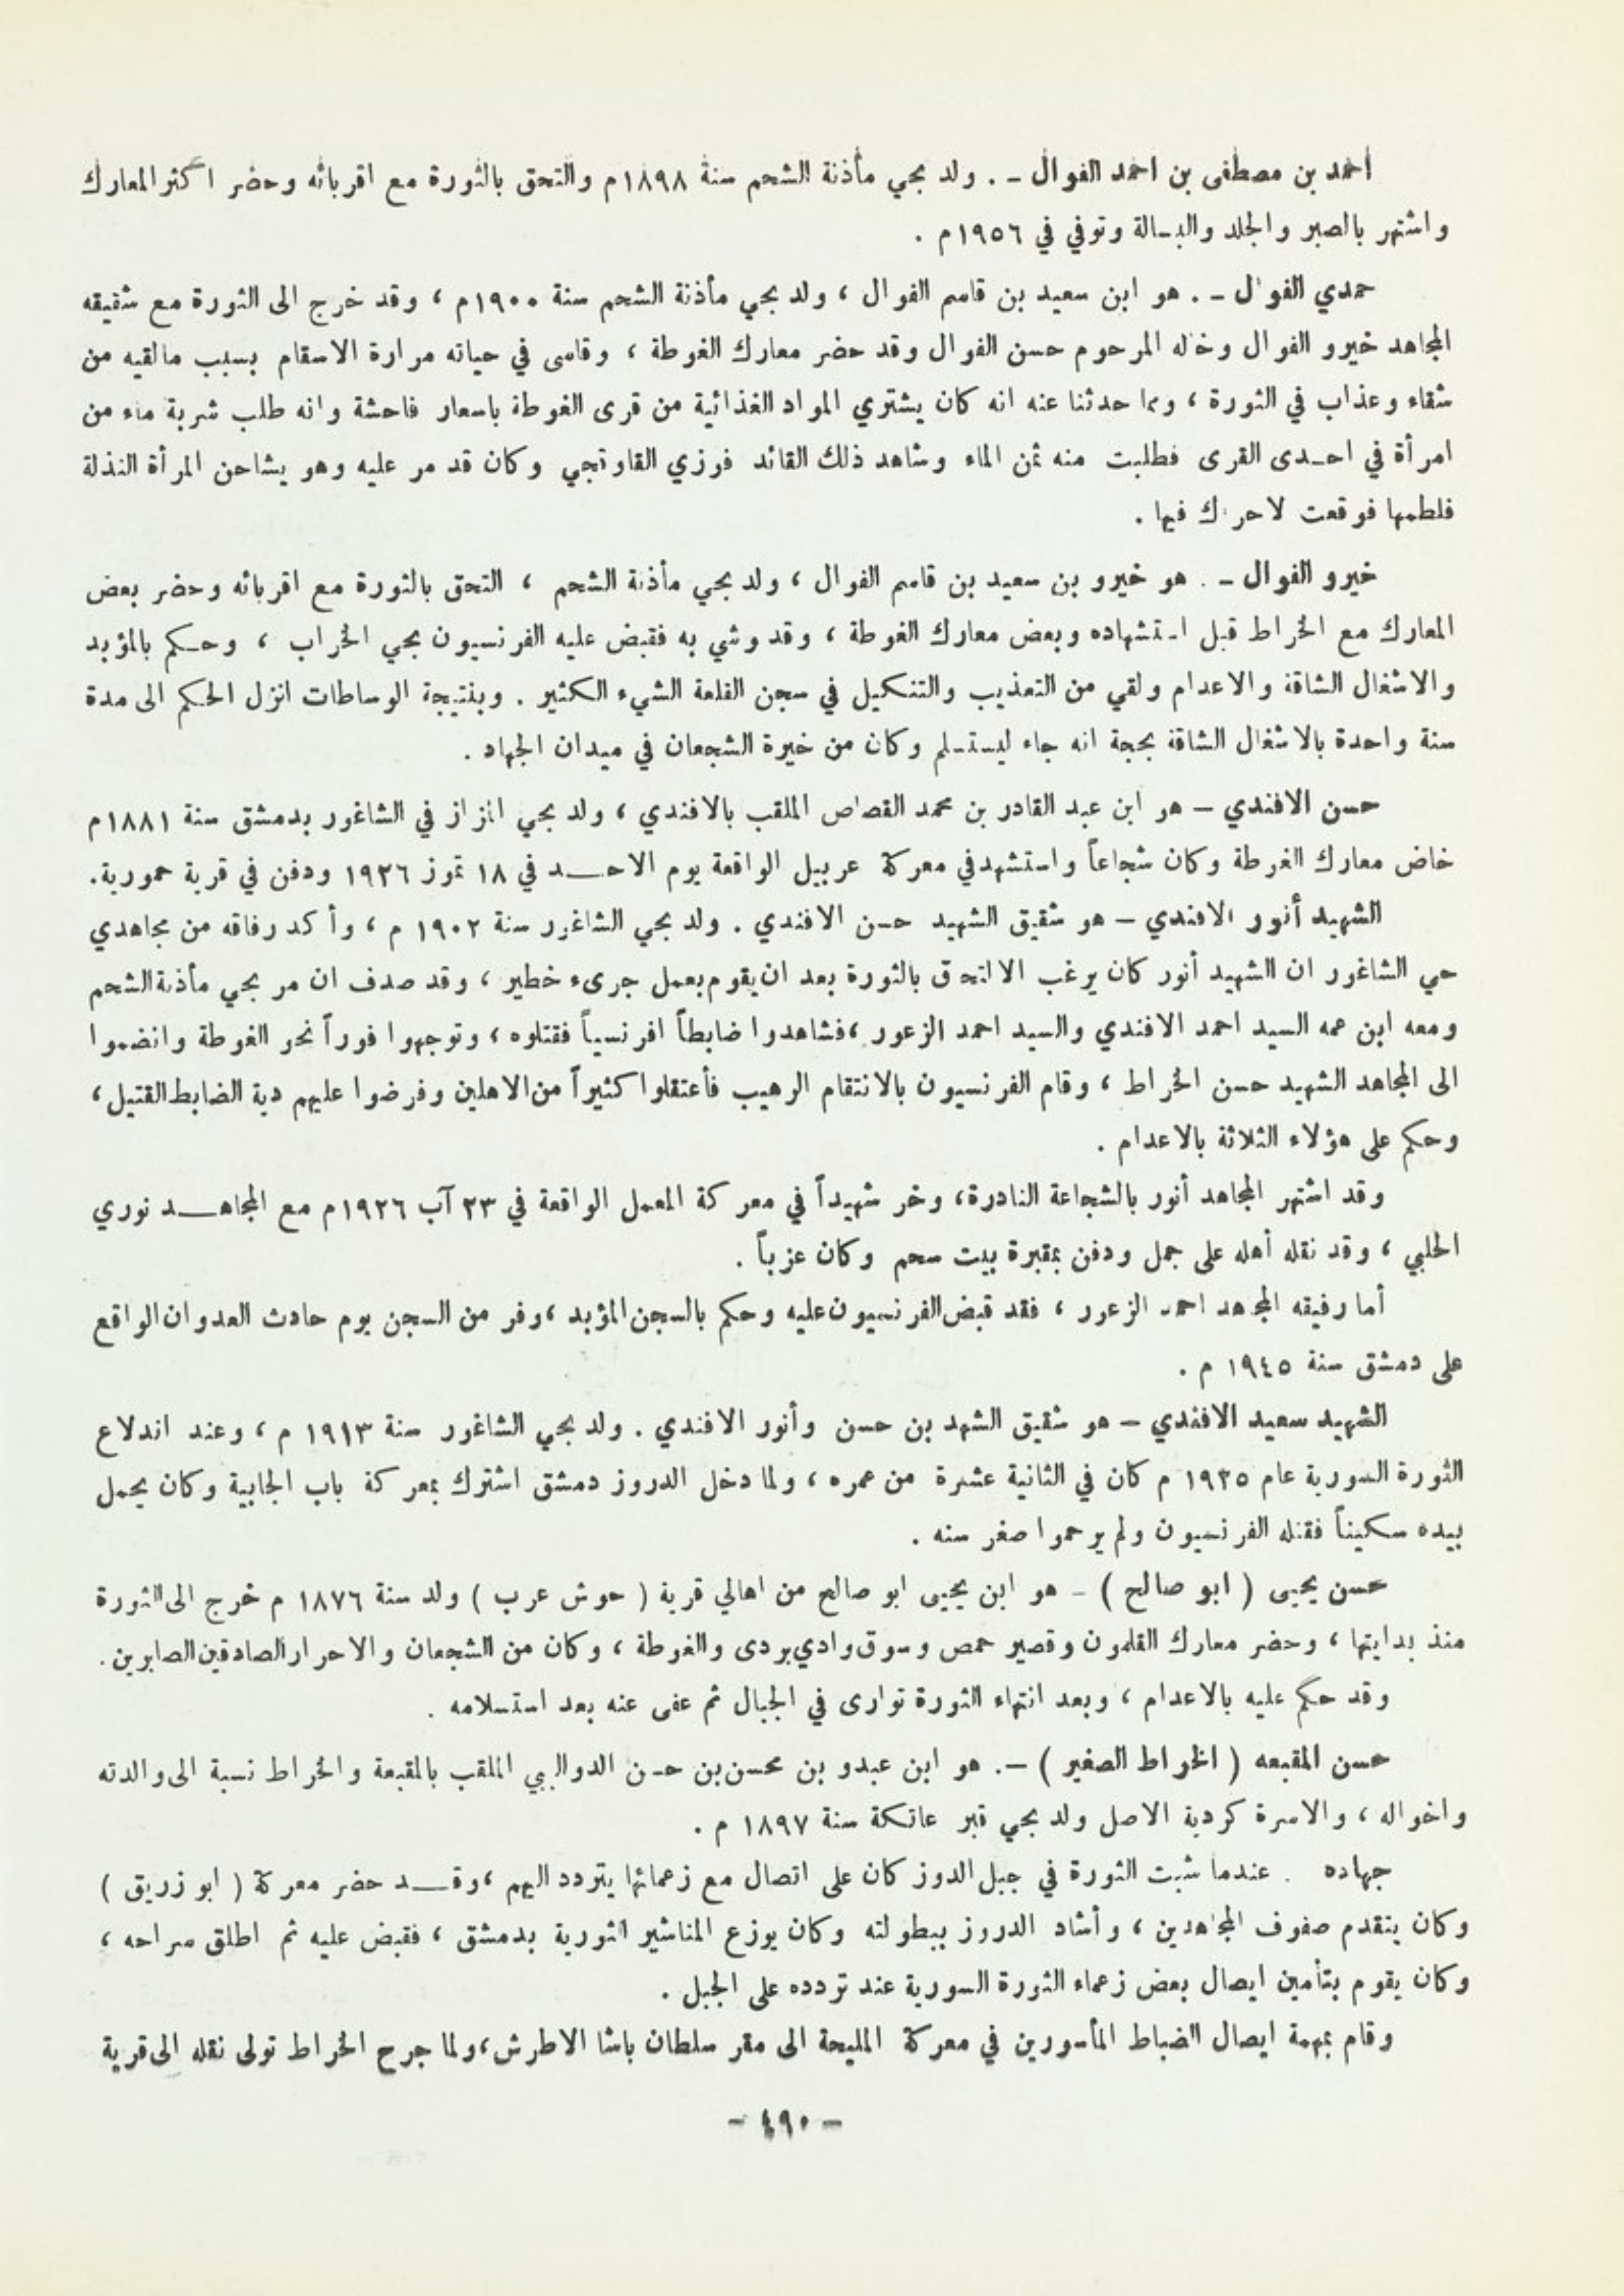 أحمد بن مصطفى بن احمد الفوال ـ . ولد بحي مأذنة الشحم سنة ١٨٩٨م والتحق بالثورة مع اقربائه وحضر اكثر المعارك
واشتهر بالصبر والجلد والبسالة وتوفي في ١٩٥٦م .
حمدي الفوال ـ . هو ابن سعيد بن قاسم الفوال ، ولد بحي مأذنة الشحم سنة ١٩٠٠م ، وقد خرج الى الثورة مع شقيقه
المجاهد خيرو الفوال وخاله المرحوم حسن الفوال وقد حضر معارك الغوطة ، وقاسى في حياته مرارة الاسقام بسبب مالقيه من
شقاء وعذاب في الثورة ، ومما حدثنا عنه انه كان يشتري المواد الغذائية من قرى الغوطة باسعار فاحشة وانه طلب شربة ماء من
امرأة في احدى القرى فطلبت منه ثمن الماء وشاهد ذلك القائد فوزي القاوقجي وكان قد مر عليه وهو يشاحن المرأة النذلة
فلطمها فوقعت لاحراك فيها .
خيرو الفوال ـ . هو خيرو بن سعيد بن قاسم الفوال ، ولد بحي مأذنة الشحم ، التحق بالثورة مع اقربائه وحضر بعض
المعارك مع الخراط قبل استشهاده وبعض معارك الغوطة ، وقد وشي به فقبض عليه الفرنسيون بحي الخراب ، وحكم بالمؤبد
والاشغال الشاقة والاعدام ولقي من التعذيب والتنكيل في سجن القلعة الشيء الكثير . وبنتيجة الوساطات انزل الحكم الى مدة
سنة واحدة بالاشغال الشاقة بحجة انه جاء ليستسلم وكان من خيرة الشجعان في ميدان الجهاد .
حسن الافندي – هو ابن عبد القادر بن محمد القصاص الملقب بالافندي ، ولد بحي المزاز في الشاغور بدمشق سنة ١٨٨١م
خاض معارك الغوطة وكان شجاعاً واستشهد في معركة عربيل الواقعة يوم الاحد في ١٨ تموز ١٩٢٦ ودفن في قرية حمورية.
الشهيد أنور الافندي – هو شقيق الشهيد حسن الافندي . ولد بحي الشاغور سنة ١٩٠٢ م ، وأكد رفاقه من مجاهدي
حي الشاغور ان الشهيد أنور كان يرغب الالتحاق بالثورة بعد ان يقوم بعمل جرىء خطير ، وقد صدف ان مر بحي مأذنة الشحم
ومعه ابن عمه السيد احمد الافندي والسيد احمد الزعور ،فشاهدوا ضابطاً افرنسياً فقتلوه ، وتوجهوا فوراً نحو الغوطة وانضموا
الى المجاهد الشهيد حسن الخراط ، وقام الفرنسيون بالانتقام الرهيب فأعتقلوا كثيراً من الاهلين وفرضوا عليهم دية الضابط القتيل ،
وحكم على هؤلاء الثلاثة بالاعدام .
وقد اشتهر المجاهد أنور بالشجاعة النادرة، وخر شهيداً في معركة المعمل الواقعة في ٢٣ آب ١٩٢٦م مع المجاهد نوري
الحلبي ، وقد نقله أهله على جمل ودفن بمقبرة بيت سحم وكان عزباً .
أما رفيقه المجاهد احمد الزعور ، فقد قبض الفرنسيون عليه وحكم بالسجن المؤبد ،وفر من السجن يوم حادث العدوان الواقع
على دمشق سنة ١٩٤٥ م .
الشهيد سعيد الافندي – هو شقيق الشهيدين حسن وأنور الافندي . ولد بحي الشاغور سنة ١٩١٣ م ، وعند اندلاع
الثورة السورية عام ١٩٢٥ م كان في الثانية عشرة من عمره ، ولما دخل الدروز دمشق اشترك بمعركة باب الجابية وكان يحمل
بيده سكيناً فقتله الفرنسيون ولم يرحموا صغر سنه .
حسن يحيى ( ابو صالح ) – هو ابن يحيى ابو صالح من اهالي قرية ( حوش عرب ) ولد سنة ١٨٧٦ م خرج الى الثورة
منذ بدايتها ، وحضر معارك القلمون وقصير حمص وسوق وادي بردى والغوطة ، وكان من الشجعان والاحرار الصادقين الصابرين.
وقد حكم عليه بالاعدام ، وبعد انتهاء الثورة توارى في الجبال ثم عفى عنه بعد استسلامه .
حسن المقبعه ( الخراط الصغير ) –. هو ابن عبدو بن محسن بن حسن الدواليبي الملقب بالمقبعة والخراط نسبة الى والدته
واخواله ، والاسرة كردية الاصل ولد بحي قبر عاتكة سنة ١٨٩٧ م .
جهاده . عندما شبت الثورة في جبل الدوز كان على اتصال مع زعمائها يتردد اليهم ،وقد حضر معركة ( ابو زريق )
وكان يتقدم صفوف المجاهدين ، وأشاد الدروز ببطولته وكان يوزع المناشير الثورية بدمشق ، فقبض عليه ثم اطلق سراحه ،
وكان يقوم بتأمين ايصال بعض زعماء الثورة السورية عند تردده على الجبل .
وقام بمهمة ايصال الضباط المأسورين في معركة المليحة الى مقر سلطان باشا الاطرش،ولما جرح الخراط تولى نقله الى قرية
– ٤٩٠ –